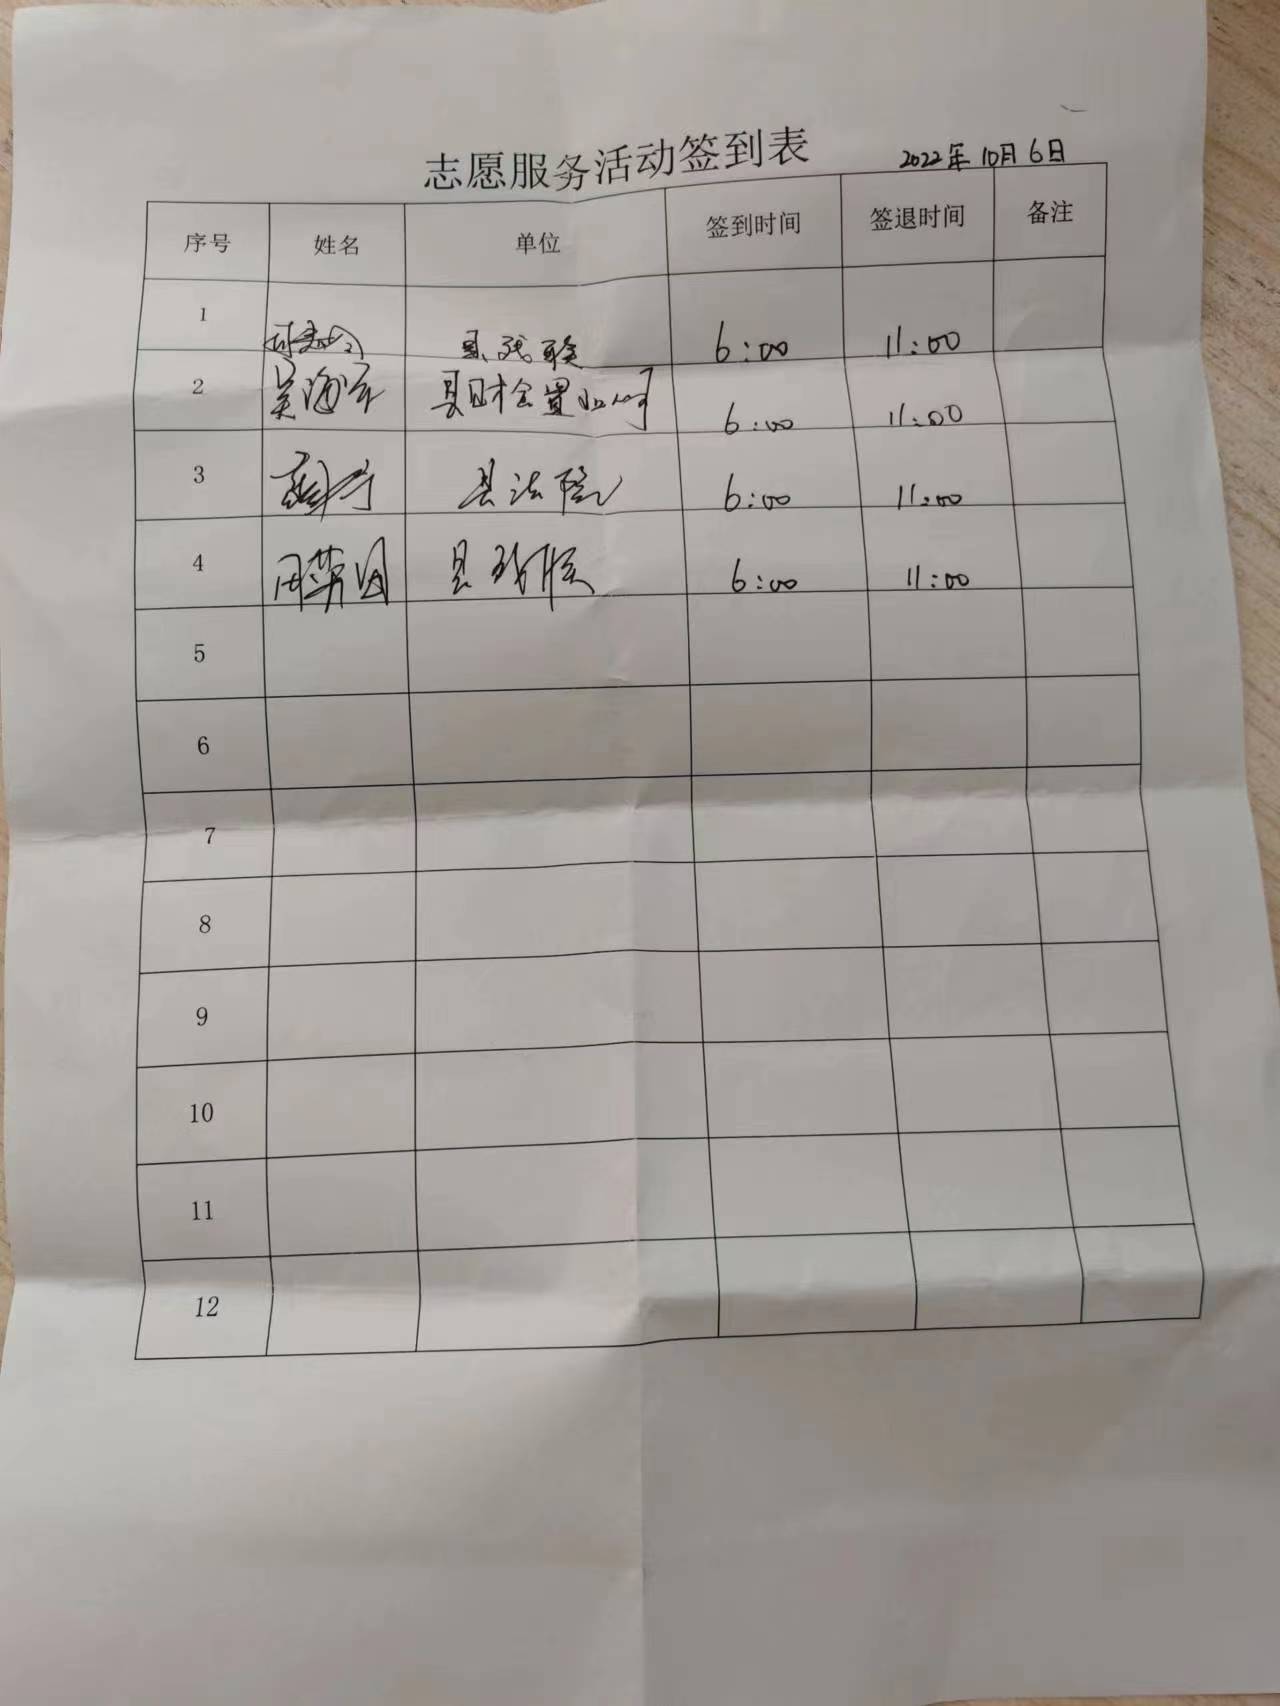 志愿服务活动签到表 2022年10月6日
序号 姓名 单位 签到时间 签退时间 备注
1 县残联 6:00 11:00
2 吴海军 县 6:00 11:00
3 县法院 6:00 11:00
4 县残联 6:00 11:00
5
6
7
8
9
10
11
12